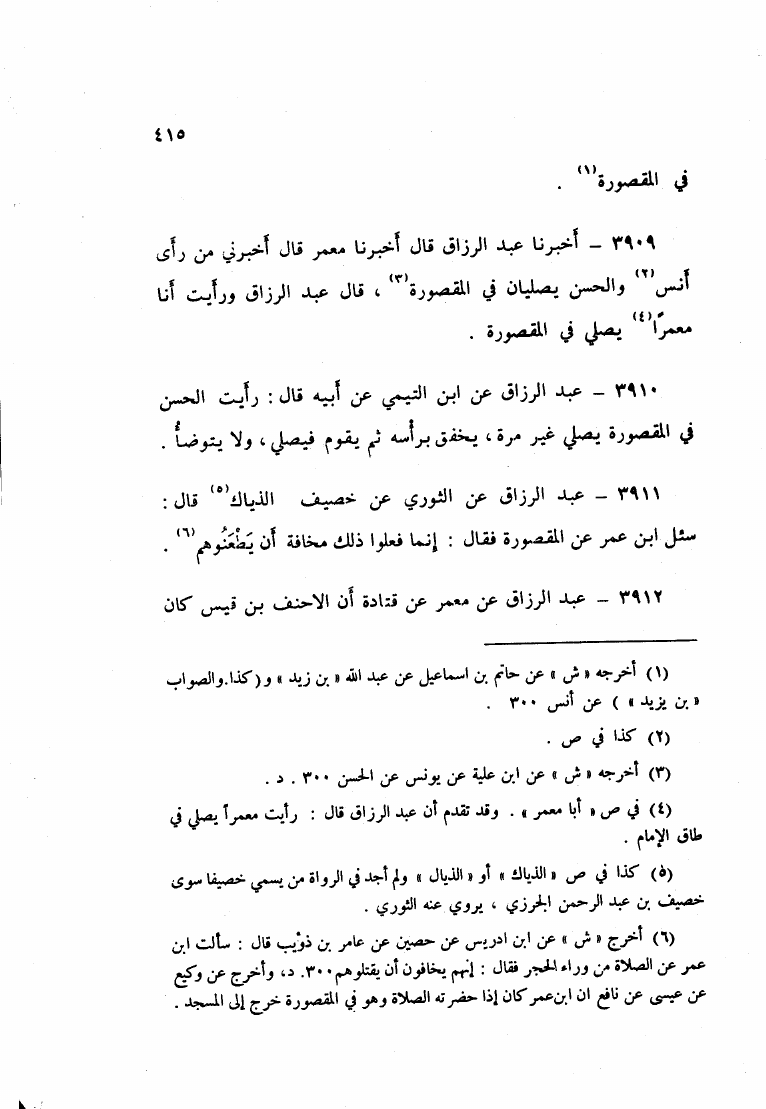 ٤١٥
في المقصورة(١) .
٣٩٠٩ – أخبرنا عبد الرزاق قال أخبرنا معمر قال أخبرني من رأى
أنس(٢) والحسن يصليان في المقصورة(٣) ، قال عبد الرزاق ورأيت أنا
معمرًا(٤) يصلي في المقصورة .
٣٩١٠ – عبد الرزاق عن ابن التيمي عن أبيه قال : رأيت الحسن
في المقصورة يصلي غير مرة ، يخفق برأسه ثم يقوم فيصلي ، ولا يتوضأُ .
٣٩١١ – عبد الرزاق عن الثوري عن خصيف الذياك(٥) قال :
سئل ابن عمر عن المقصورة فقال : إنما فعلوا ذلك مخافة أن يَطْعَنُوهم(٦) .
٣٩١٢ – عبد الرزاق عن معمر عن قتادة أن الاحنف بن قيس كان
(١) أخرجه « ش » عن حاتم بن اسماعيل عن عبد الله « بن زيد » و (كذا.والصواب
« بن يزيد » ) عن أنس ٣٠٠ .
(٢) كذا في ص .
(٣) أخرجه « ش » عن ابن علية عن يونس عن الحسن ٣٠٠ . د .
(٤) في ص « أبا معمر » . وقد تقدم أن عبد الرزاق قال : رأيت معمراً يصلي في
طاق الإمام .
(٥) كذا في ص « الذياك » أو « الذيال » ولم أجد في الرواة من يسمي خصيفا سوى
خصيف بن عبد الرحمن الجرزي ، يروي عنه الثوري .
(٦) أخرج « ش » عن ابن ادريس عن حصين عن عامر بن ذوْيب قال : سألت ابن
عمر عن الصلاة من وراء الحجر فقال : إنهم يخافون أن يقتلوهم ٣٠٠. د، وأخرج عن وكيع
عن عيسى عن نافع ان ابن عمر كان إذا حضرته الصلاة وهو في المقصورة خرج إلى المسجد .